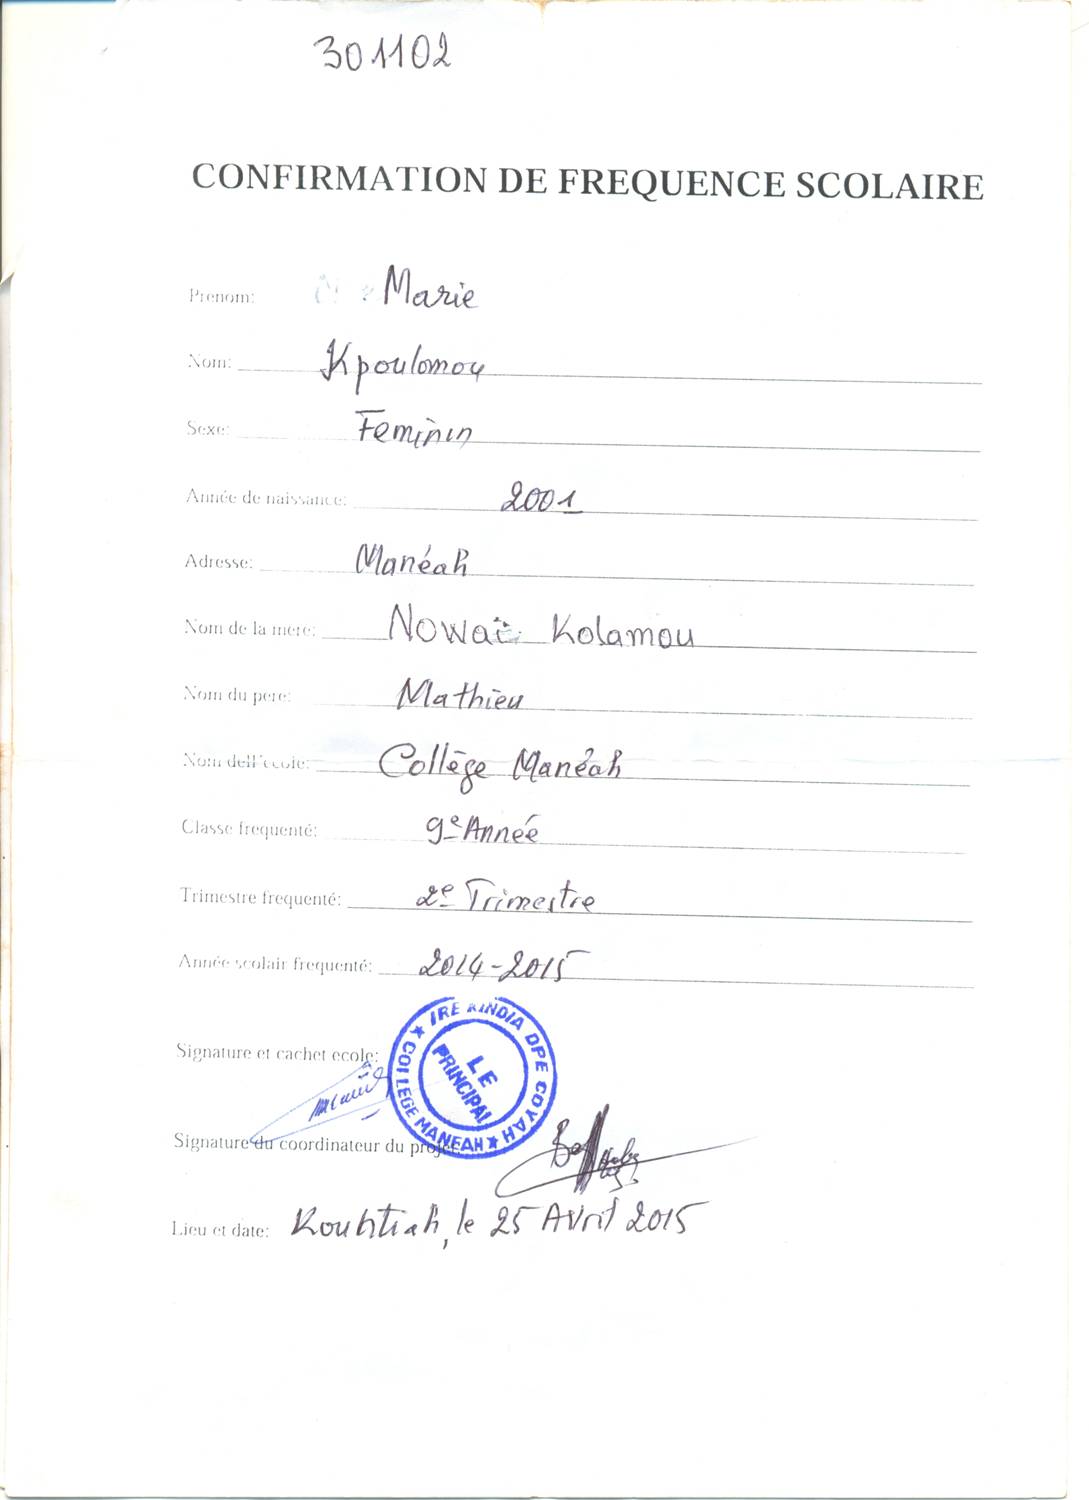 301102
CONFIRMATION DE FREQUENCE SCOLAIRE
Prenom: Marie
Nom: Kpoulomou
Sexe: Feminin
Année de naissance: 2001
Adresse: Manéah
Nom de la mere: Nowaï Kolamou
Nom du pere: Mathieu
Nom dell'ecole: Collège Manéah
Classe frequenté: 9e Année
Trimestre frequenté: 2e Trimestre
Année scolair frequenté: 2014-2015
Signature et cachet ecole:
IRE KINDIA DPE COYAH
★ COLLEGE MANEAH ★
LE
PRINCIPAL
Signature du coordinateur du projet:
Lieu et date: le 25 Avril 2015